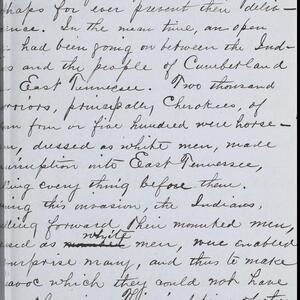 haps for ever prevent their deliv-
ance. In the mean time, an open
had been going on between the Ind-
s and the people of Cumberland
East Tennessee. Two thousand
rriors, principally Cherokees, of
om four or five hundred were horse-
n, dressed as white men, made
irruption into East Tennessee,
ling every thing before them.
ing this invasion, the Indians,
ding forward their mounted men,
white
sed as mounted men, were enabled
surprise many, and thus to make
avoc which they could not have